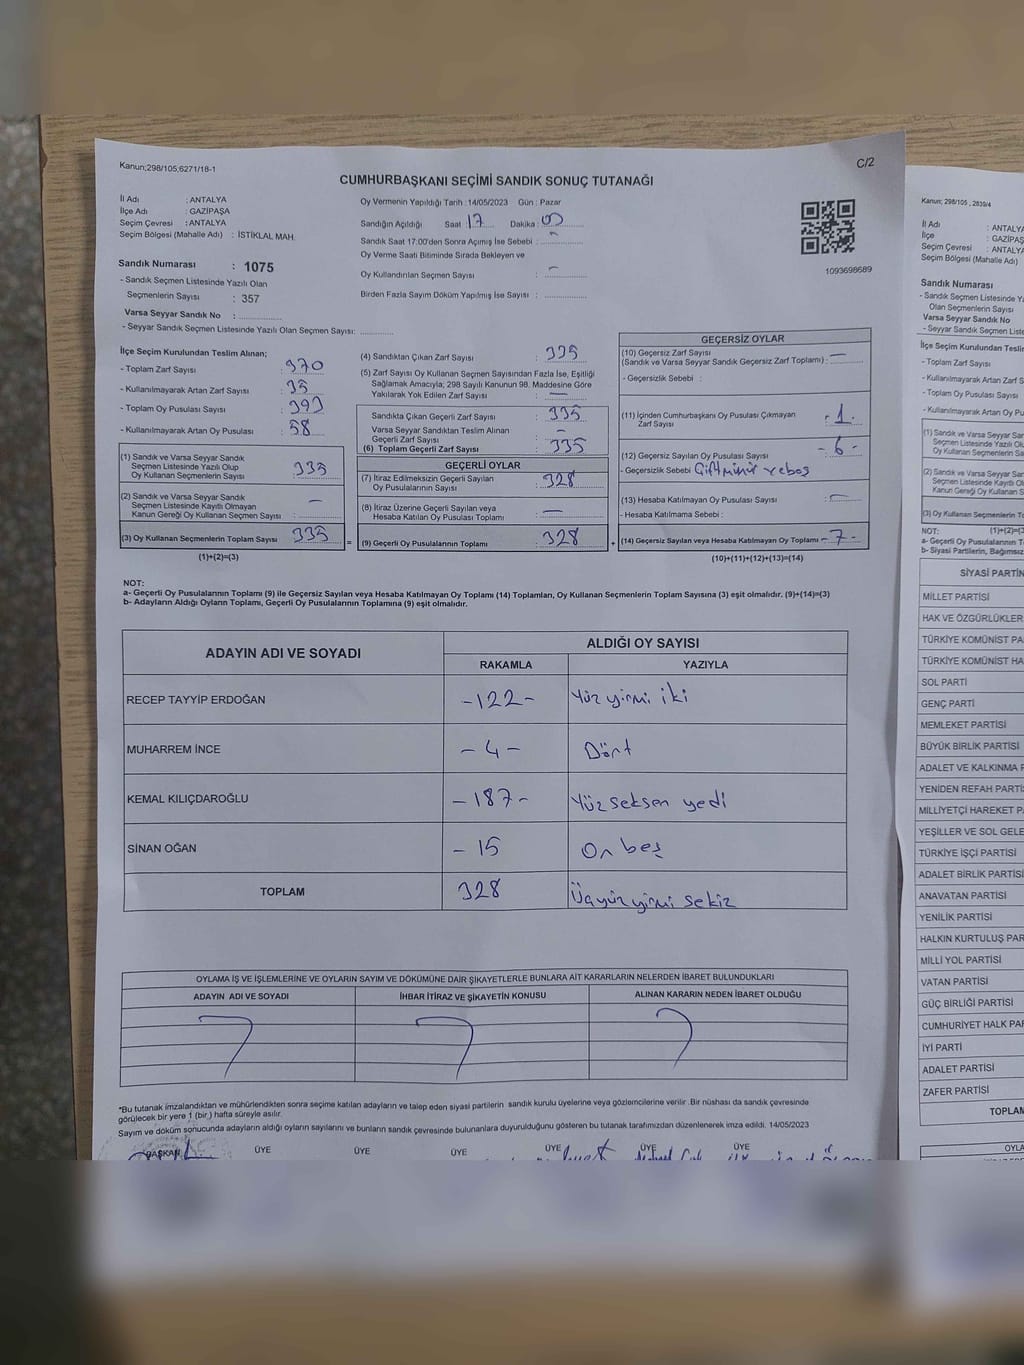 Kanun;298/105,6271/18-1
C/2
CUMHURBAŞKANI SEÇİMİ SANDIK SONUÇ TUTANAĞI
İl Adı : ANTALYA
İlçe Adı : GAZİPAŞA
Seçim Çevresi : ANTALYA
Seçim Bölgesi (Mahalle Adı) : İSTİKLAL MAH.
Sandık Numarası : 1075
- Sandık Seçmen Listesinde Yazılı Olan
Seçmenlerin Sayısı : 357
Varsa Seyyar Sandık No :
- Seyyar Sandık Seçmen Listesinde Yazılı Olan Seçmen Sayısı:
Oy Vermenin Yapıldığı Tarih : 14/05/2023 Gün : Pazar
Sandığın Açıldığı Saat : 17 Dakika :
Sandık Saat 17:00'den Sonra Açımış İse Sebebi :
Oy Verme Saati Bitiminde Sırada Bekleyen ve
Oy Kullandırılan Seçmen Sayısı : —
Birden Fazla Sayım Döküm Yapılmış İse Sayısı :
1093698689
İlçe Seçim Kurulundan Teslim Alınan;
- Toplam Zarf Sayısı : 370
- Kullanılmayarak Artan Zarf Sayısı : 35
- Toplam Oy Pusulası Sayısı : 393
- Kullanılmayarak Artan Oy Pusulası : 58
(1) Sandık ve Varsa Seyyar Sandık
Seçmen Listesinde Yazılı Olup
Oy Kullanan Seçmenlerin Sayısı : 335
(2) Sandık ve Varsa Seyyar Sandık
Seçmen Listesinde Kayıtlı Olmayan
Kanun Gereği Oy Kullanan Seçmen Sayısı : —
(3) Oy Kullanan Seçmenlerin Toplam Sayısı : 335
(1)+(2)=(3)
(4) Sandıktan Çıkan Zarf Sayısı : 335
(5) Zarf Sayısı Oy Kullanan Seçmen Sayısından Fazla İse, Eşitliği
Sağlamak Amacıyla; 298 Sayılı Kanunun 98. Maddesine Göre
Yakılarak Yok Edilen Zarf Sayısı : —
Sandıkta Çıkan Geçerli Zarf Sayısı : 335
Varsa Seyyar Sandıktan Teslim Alınan
Geçerli Zarf Sayısı : —
(6) Toplam Geçerli Zarf Sayısı : 335
GEÇERLİ OYLAR
(7) İtiraz Edilmeksizin Geçerli Sayılan
Oy Pusulalarının Sayısı : 328
(8) İtiraz Üzerine Geçerli Sayılan veya
Hesaba Katılan Oy Pusulası Toplamı : —
= (9) Geçerli Oy Pusulalarının Toplamı : 328
GEÇERSİZ OYLAR
(10) Geçersiz Zarf Sayısı
(Sandık ve Varsa Seyyar Sandık Geçersiz Zarf Toplamı) : —
- Geçersizlik Sebebi :
(11) İçinden Cumhurbaşkanı Oy Pusulası Çıkmayan
Zarf Sayısı : 1.
(12) Geçersiz Sayılan Oy Pusulası Sayısı - 6 -
- Geçersizlik Sebebi
(13) Hesaba Katılmayan Oy Pusulası Sayısı : —
- Hesaba Katılmama Sebebi :
+ (14) Geçersiz Sayılan veya Hesaba Katılmayan Oy Toplamı - 7 -
(10)+(11)+(12)+(13)=(14)
NOT:
a- Geçerli Oy Pusulalarının Toplamı (9) ile Geçersiz Sayılan veya Hesaba Katılmayan Oy Toplamı (14) Toplamları, Oy Kullanan Seçmenlerin Toplam Sayısına (3) eşit olmalıdır. (9)+(14)=(3)
b- Adayların Aldığı Oyların Toplamı, Geçerli Oy Pusulalarının Toplamına (9) eşit olmalıdır.
ADAYIN ADI VE SOYADI
ALDIĞI OY SAYISI
RAKAMLA YAZIYLA
RECEP TAYYİP ERDOĞAN -122- Yüz yirmi iki
MUHARREM İNCE - 4 - Dört
KEMAL KILIÇDAROĞLU -187- Yüz seksen yedi
SİNAN OĞAN - 15 On beş
TOPLAM 328 Üçyüz yirmi sekiz
OYLAMA İŞ VE İŞLEMLERİNE VE OYLARIN SAYIM VE DÖKÜMÜNE DAİR ŞİKAYETLERLE BUNLARA AİT KARARLARIN NELERDEN İBARET BULUNDUKLARI
ADAYIN ADI VE SOYADI İHBAR İTİRAZ VE ŞİKAYETİN KONUSU ALINAN KARARIN NEDEN İBARET OLDUĞU
*Bu tutanak imzalandıktan ve mühürlendikten sonra seçime katılan adayların ve talep eden siyasi partilerin sandık kurulu üyelerine veya gözlemcilerine verilir .Bir nüshası da sandık çevresinde
görülecek bir yere 1 (bir ) hafta süreyle asılır.
Sayım ve döküm sonucunda adayların aldığı oyların sayılarını ve bunların sandık çevresinde bulunanlara duyurulduğunu gösteren bu tutanak tarafımızdan düzenlenerek imza edildi. 14/05/2023
BAŞKAN ÜYE ÜYE ÜYE ÜYE ÜYE ÜYE
Kanun; 298/105 , 2839/4
İl Adı : ANTALYA
İlçe : GAZİPAŞ
Seçim Çevresi : ANTALYA
Seçim Bölgesi (Mahalle Adı)
Sandık Numarası
- Sandık Seçmen Listesinde Y
Olan Seçmenlerin Sayısı
Varsa Seyyar Sandık No
- Seyyar Sandık Seçmen Liste
İlçe Seçim Kurulundan Teslim
- Toplam Zarf Sayısı
- Kullanılmayarak Artan Zarf S
- Toplam Oy Pusulası Sayısı
- Kullanılmayarak Artan Oy Pu
(1) Sandık ve Varsa Seyyar San
Seçmen Listesinde Yazılı Ol
Oy Kullanan Seçmenlerin S
(2) Sandık ve Varsa Seyyar San
Seçmen Listesinde Kayıtlı Ol
Kanun Gereği Oy Kullanan S
(3) Oy Kullanan Seçmenlerin To
NOT: (1)+(2)=(3
a- Geçerli Oy Pusulalarının T
b- Siyasi Partilerin, Bağımsız
SİYASİ PARTİN
MİLLET PARTİSİ
HAK VE ÖZGÜRLÜKLER
TÜRKİYE KOMÜNİST PA
TÜRKİYE KOMÜNİST HA
SOL PARTİ
GENÇ PARTİ
MEMLEKET PARTİSİ
BÜYÜK BİRLİK PARTİSİ
ADALET VE KALKINMA P
YENİDEN REFAH PARTİS
MİLLİYETÇİ HAREKET P
YEŞİLLER VE SOL GELE
TÜRKİYE İŞÇİ PARTİSİ
ADALET BİRLİK PARTİSİ
ANAVATAN PARTİSİ
YENİLİK PARTİSİ
HALKIN KURTULUŞ PAR
MİLLİ YOL PARTİSİ
VATAN PARTİSİ
GÜÇ BİRLİĞİ PARTİSİ
CUMHURİYET HALK PAR
İYİ PARTİ
ADALET PARTİSİ
ZAFER PARTİSİ
TOPLAM
OYLA